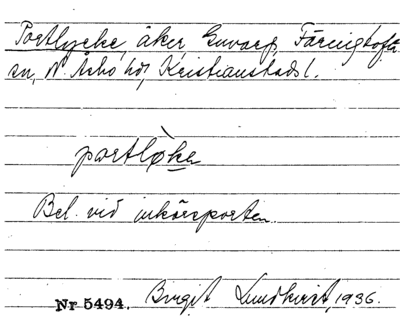 Portlycke, åker, Envarp, Färingtofta
sn, N. Åsbo hd, Kristianstads l.
portlø̀ka
Bel. vid inkörsporten.
Nr 5494. Birgit Lundkvist, 1936.